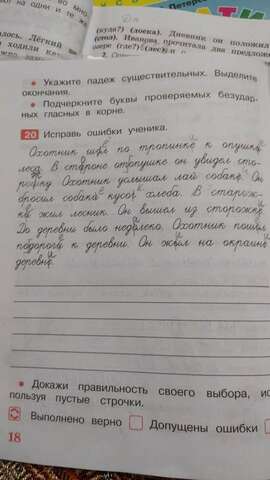 (куда?) (доска). Дневник он положил
(стол). Ивашка прочитала два предложен
Укажите падеж существительных. Выделите
окончания.
Подчеркните буквы проверяемых безудар-
ных гласных в корне.
20 Исправь ошибки ученика.
Охотник шёл по тропинке к опушке
леса. В стороне от опушке он увидел сто-
рожку. Охотник услышал лай собаке. Он
бросил собаке кусок хлеба. В сторож-
ке жил лесник. Он вышел из сторожке
До деревни было недалеко. Охотник пошёл
подороге к деревни. Он жил на окраине
деревне.
Докажи правильность своего выбора, ис
пользуя пустые строчки.
Выполнено верно Допущены ошибки
18